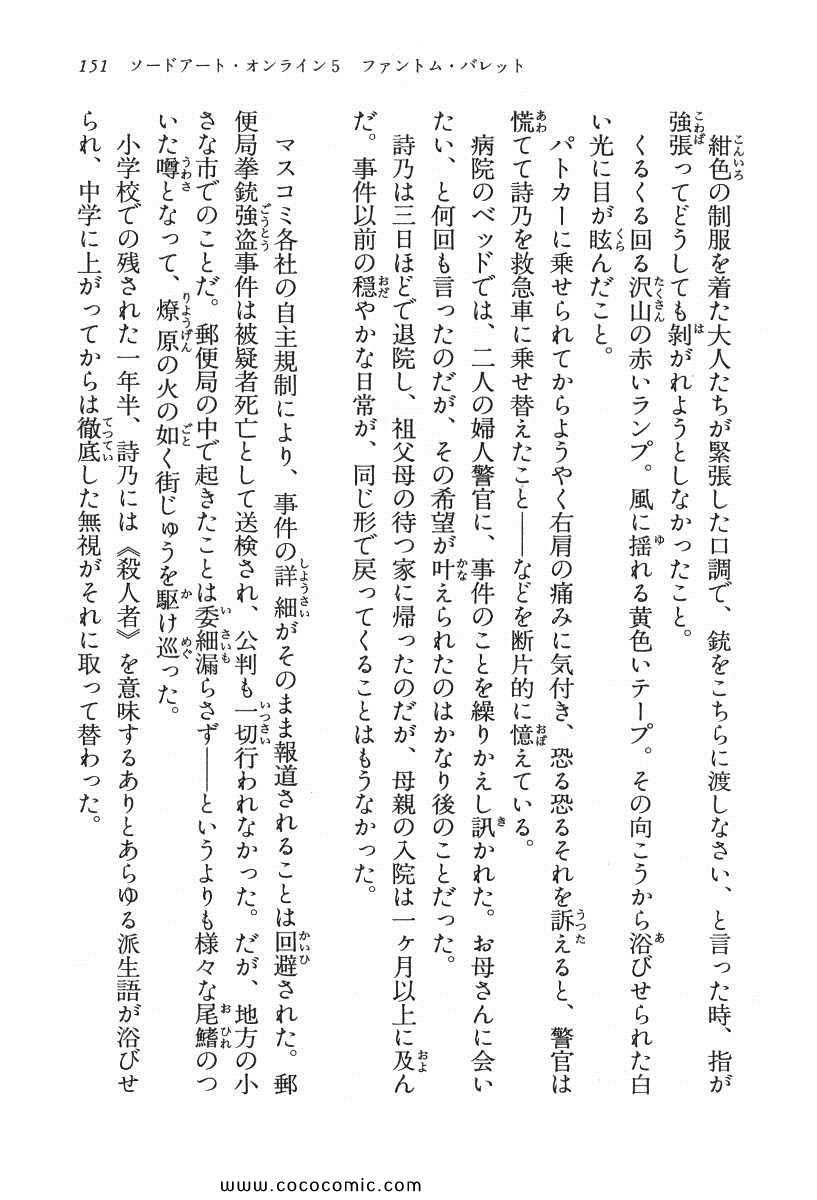 151　ソードアート・オンライン5　ファントム・バレット
紺色の制服を着た大人たちが緊張した口調で、銃をこちらに渡しなさい、と言った時、指が
強張ってどうしても剝がれようとしなかったこと。
くるくる回る沢山の赤いランプ。風に揺れる黄色いテープ。その向こうから浴びせられた白
い光に目が眩んだこと。
パトカーに乗せられてからようやく右肩の痛みに気付き、恐る恐るそれを訴えると、警官は
慌てて詩乃を救急車に乗せ替えたこと――などを断片的に憶えている。
病院のベッドでは、二人の婦人警官に、事件のことを繰りかえし訊かれた。お母さんに会い
たい、と何回も言ったのだが、その希望が叶えられたのはかなり後のことだった。
詩乃は三日ほどで退院し、祖父母の待つ家に帰ったのだが、母親の入院は一ヶ月以上に及ん
だ。事件以前の穏やかな日常が、同じ形で戻ってくることはもうなかった。
マスコミ各社の自主規制により、事件の詳細がそのまま報道されることは回避された。郵
便局拳銃強盗事件は被疑者死亡として送検され、公判も一切行われなかった。だが、地方の小
さな市でのことだ。郵便局の中で起きたことは委細漏らさず――というよりも様々な尾鰭のつ
いた噂となって、燎原の火の如く街じゅうを駆け巡った。
小学校での残された一年半、詩乃には《殺人者》を意味するありとあらゆる派生語が浴びせ
られ、中学に上がってからは徹底した無視がそれに取って替わった。
www.cococomic.com